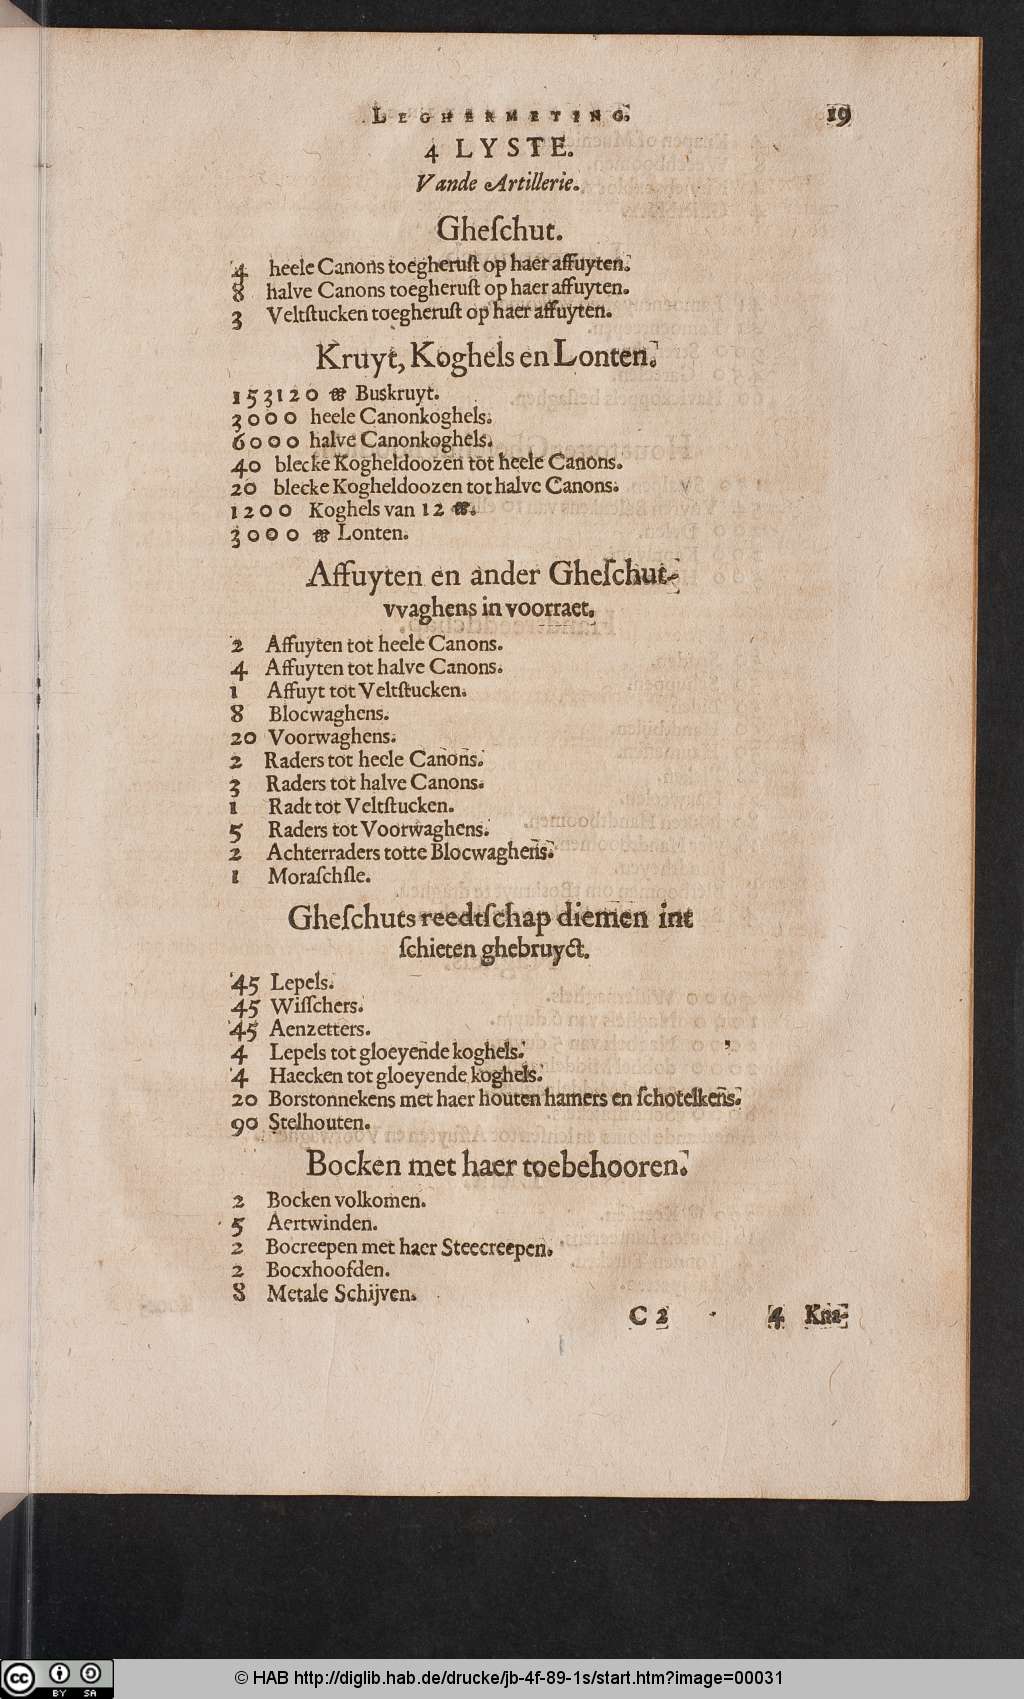 LEGHERMETING. 19
4 LYSTE.
Vande Artillerie.
Gheſchut.
4 heele Canons toegheruſt op haer affuyten.
8 halve Canons toegheruſt op haer affuyten.
3 Veltſtucken toegheruſt op haer affuyten.
Kruyt, Koghels en Lonten.
153120 ℔ Buskruyt.
3000 heele Canonkoghels.
6000 halve Canonkoghels.
40 blecke Kogheldoozen tot heele Canons.
20 blecke Kogheldoozen tot halve Canons.
1200 Koghels van 12 ℔.
3000 ℔ Lonten.
Affuyten en ander Gheſchut-
vvaghens in voorraet.
2 Affuyten tot heele Canons.
4 Affuyten tot halve Canons.
1 Affuyt tot Veltſtucken.
8 Blocwaghens.
20 Voorwaghens.
2 Raders tot heele Canons.
3 Raders tot halve Canons.
1 Radt tot Veltſtucken.
5 Raders tot Voorwaghens.
2 Achterraders totte Blocwaghens.
1 Moraſchſle.
Gheſchuts reedtſchap diemen int
ſchieten ghebruyct.
45 Lepels.
45 Wiſſchers.
45 Aenzetters.
4 Lepels tot gloeyende koghels.
4 Haecken tot gloeyende koghels.
20 Borstonnekens met haer houten hamers en ſchotelkens.
90 Stelhouten.
Bocken met haer toebehooren.
2 Bocken volkomen.
5 Aertwinden.
2 Bocreepen met haer Steecreepen.
2 Bocxhoofden.
8 Metale Schijven.
C 2 4 Kna-
cc BY SA © HAB http://diglib.hab.de/drucke/jb-4f-89-1s/start.htm?image=00031